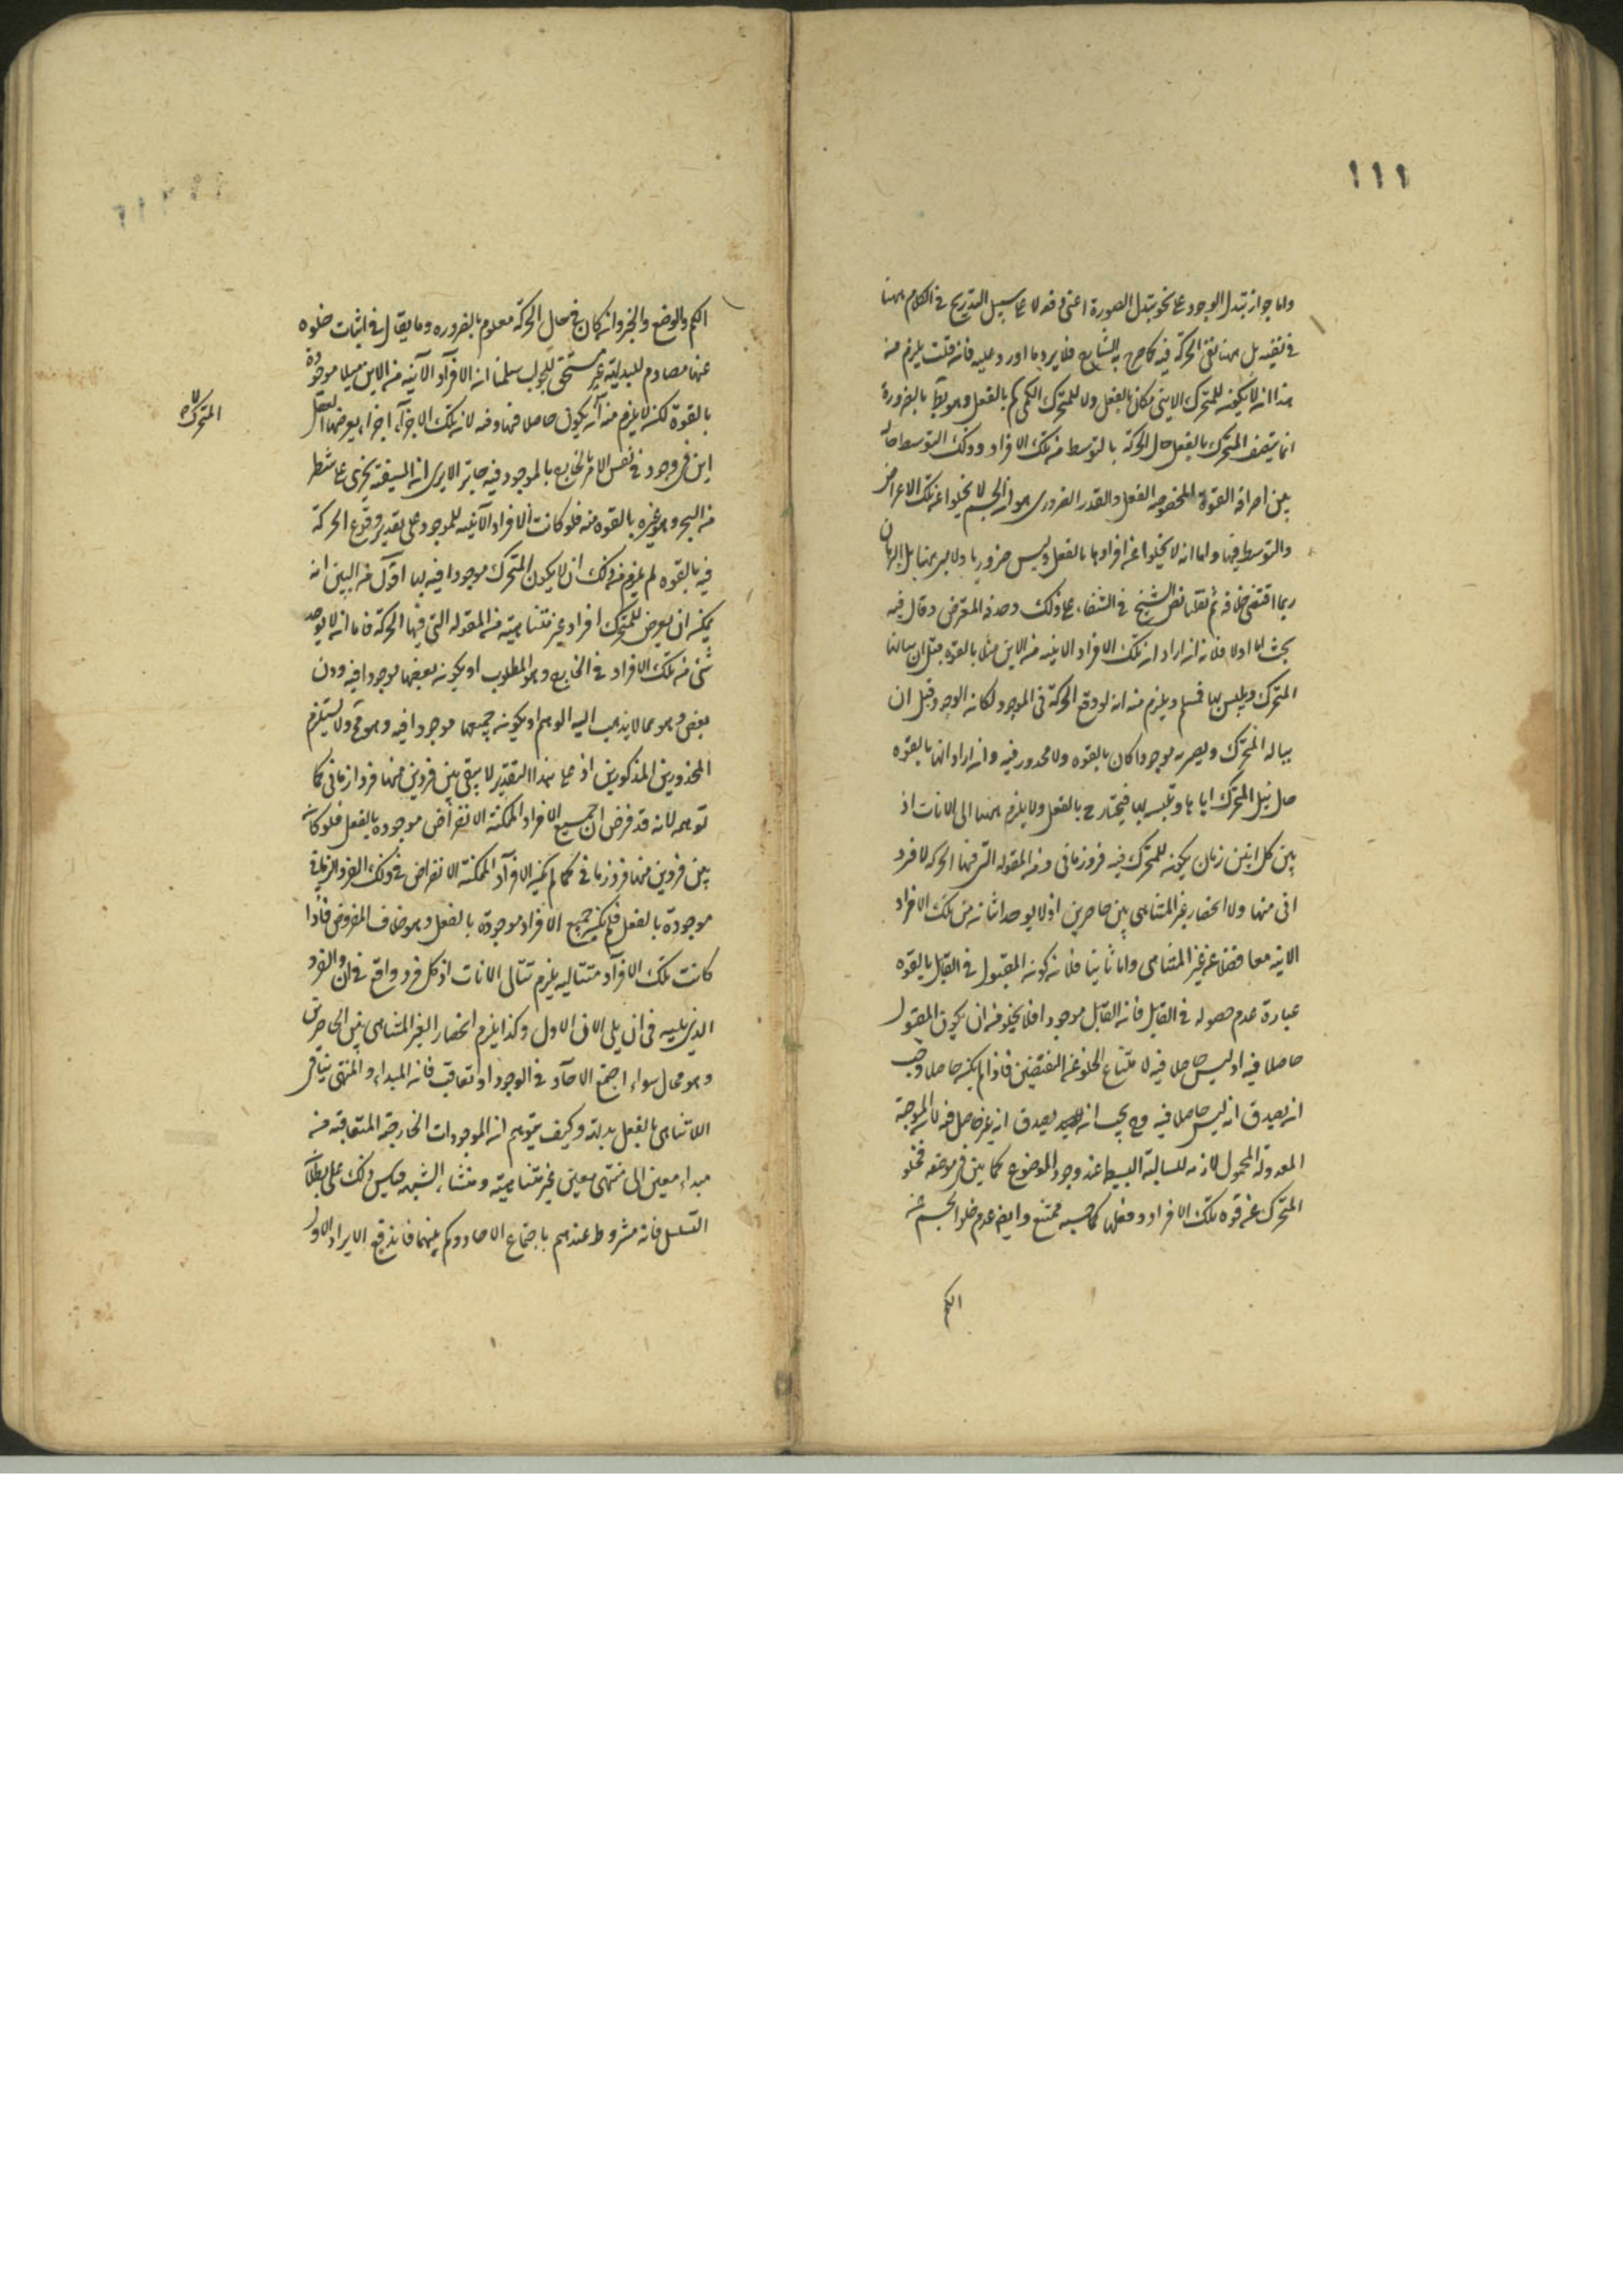 ١١١
واما جواز تبدل الوجود على نحو تبدل الصورة اعنى دفعة لا على سبيل التدريج فى الكلام ههنا
فى نفيه بل ههنا نفى الحركة فيه كما صرح به الشارح فلا يرد ما اورد عليه فانه قلت يلزم من
هذا انه لا يكون للمتحرك الاينى مكان بالفعل ولا للمتحرك الكمى كم بالفعل وهو بط بالضرورة
انما يتصف المتحرك بالفعل حال الحركة بالتوسط من تلك الافراد وذلك التوسط حالة
بين صرافة القوة المحضة الفعل والقدر الضرورى هو ان الجسم لا يخلوا عن تلك الاعراض
والتوسط فيها واما انه لا يخلوا عن افرادها بالفعل وليس ضروريا ولا مبرهنا بل البرهان
ربما اقتضى خلافه ثم نقلنا نص الشيخ فى الشفاء على ذلك المعترض وقال فيه
بحث اما اولا فلانه ان اراد ان تلك الافراد الانيه من الاين مثلا بالقوة قبل ان ينالها
المتحرك ويلبس بها فمسلم ويلزم منه انه لو وقع الحركة فى الوجود لكانه الوجود قبل ان
يناله المتحرك ويصير به موجودا كان بالقوه ولا محذور فيه وانه اراد انها بالقوه
حال نيل المتحرك اياها وتلبسه بها فيختار ح بالفعل ولا يلزم ههنا تالى الانات اذ
بين كل اينين زمان يكون للمتحرك فيه فرد زمانى من المقولة التى فيها الحركة لا فرد
انى منها ولا انحصار غير المتناهى بين حاصرين اذ لا يوجد اثنان من تلك الافراد
الانيه معا فضلا عن غير المتناهى واما ثانيا فلانه كونه المقبول فى القابل بالقوه
عبارة عدم حصوله فى القابل فانه القابل موجود افلا يخلو من ان يكون المقبول
حاصلا فيه او ليس حاصلا فيه لامتناع الخلو عن النقيضين فاذا لم يكن حاصلا وجب
ان يصدق انه ليس حاصلا فيه وح يجب انه يصدق انه غير حاصل فيه لان الموجبة
المعدولة المحمول لازمة للسالبة البسيطة عند وجود الموضوع كما بين فى موضعه فخلو
المتحرك عن قوه تلك الافراد وفعلها كما حسبه ممتنع وايضا عدم خلو الجسم عن
الكم
الكم والوضع والخير وانه كان فى حال الحركة معلوم بالضروره وما يقال فى اثبات خلوه
عنها مصادم للبديهة غير مستحق للجواب سلمنا انه الافراد الآنيه من الاين مثلا موجودة
بالقوة لكنه لا يلزم منه ان يكون حاصلا فيها وفيه لانه تلك الاجزاء اجزاء يعرضها العقل
اين فى وجود فى نفس الامر بالخارج بالموجود فيه جايز الا يرى انه السفينه يجرى على شط
من البحر وهو غيره بالقوه منه فلو كانت الافراد الآنيه للموجود على تقدير وقوع الحركة
فيه بالقوه لم يلزم من ذلك ان لا يكون المتحرك موجودا فيه لها اقول من البين انه
يمكن ان يعرض للمتحرك افراد غير متناهية من المقولة التى فيها الحركة فاما انه لا يوجد
شئ من تلك الافراد فى الخارج وهو المطلوب او يكون بعضها موجودا فيه ودون
بعض وهو مما لا يذهب اليه الوهم او يكون جميعها موجودا فيه وهو مح ولا يستلزم
المحذورين المذكورين اذ على هذا التقدير لا يبقى بين فردين منها فرد زمانى كما
توهمه لانه قد فرض ان جميع الافراد الممكنة الانفراض موجوده بالفعل فلو كان
بين فردين منها فرد زمانى فما لم يكن الافراد الممكنة الانفراض فى ذلك الفرد الزمانى
موجودة بالفعل فلم يكن جميع الافراد موجودة بالفعل وهو خلاف المفروض فاذا
كانت تلك الافراد متتاليه يلزم تتالى الانات اذ كل فرد واقع فى ان والفرد
الذى يليه فى ان يلى الان الاول وكذا يلزم انحصار الغير المتناهى بين الحاصرين
وهو محال سواء اجتمع الاحاد فى الوجود او تعاقب فانه المبداء والمنتهى ينافى
اللاتناهى بالفعل بديهة وكيف يتوهم انه الموجودات الخارجية المتعاقبه من
مبداء معين الى منتهى معين غير متناهية ومنشاء الشبهه قياس ذلك على بطلان
التسلسل فانه مشروط عندهم باجتماع الاحاد وكم بينهما فاندفع الايراد الاول
المتحرك